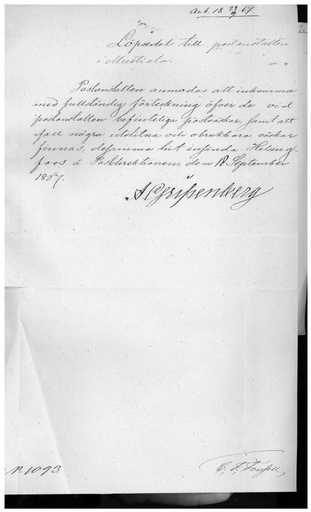 Ank. 18 22/9 67.
Löpsedel till postanstalten
i Mustiala.
Postanstalten anmodas att inkomma
med fullständig förteckning öfver de vid
postanstalten befintelige postväskor samt att
ifall några utslitna och obrukbara väskor
finnas, desamma hit insända. Helsing-
fors à Postdirektionen den 18 September
1867.
A Gripenberg
N 1093